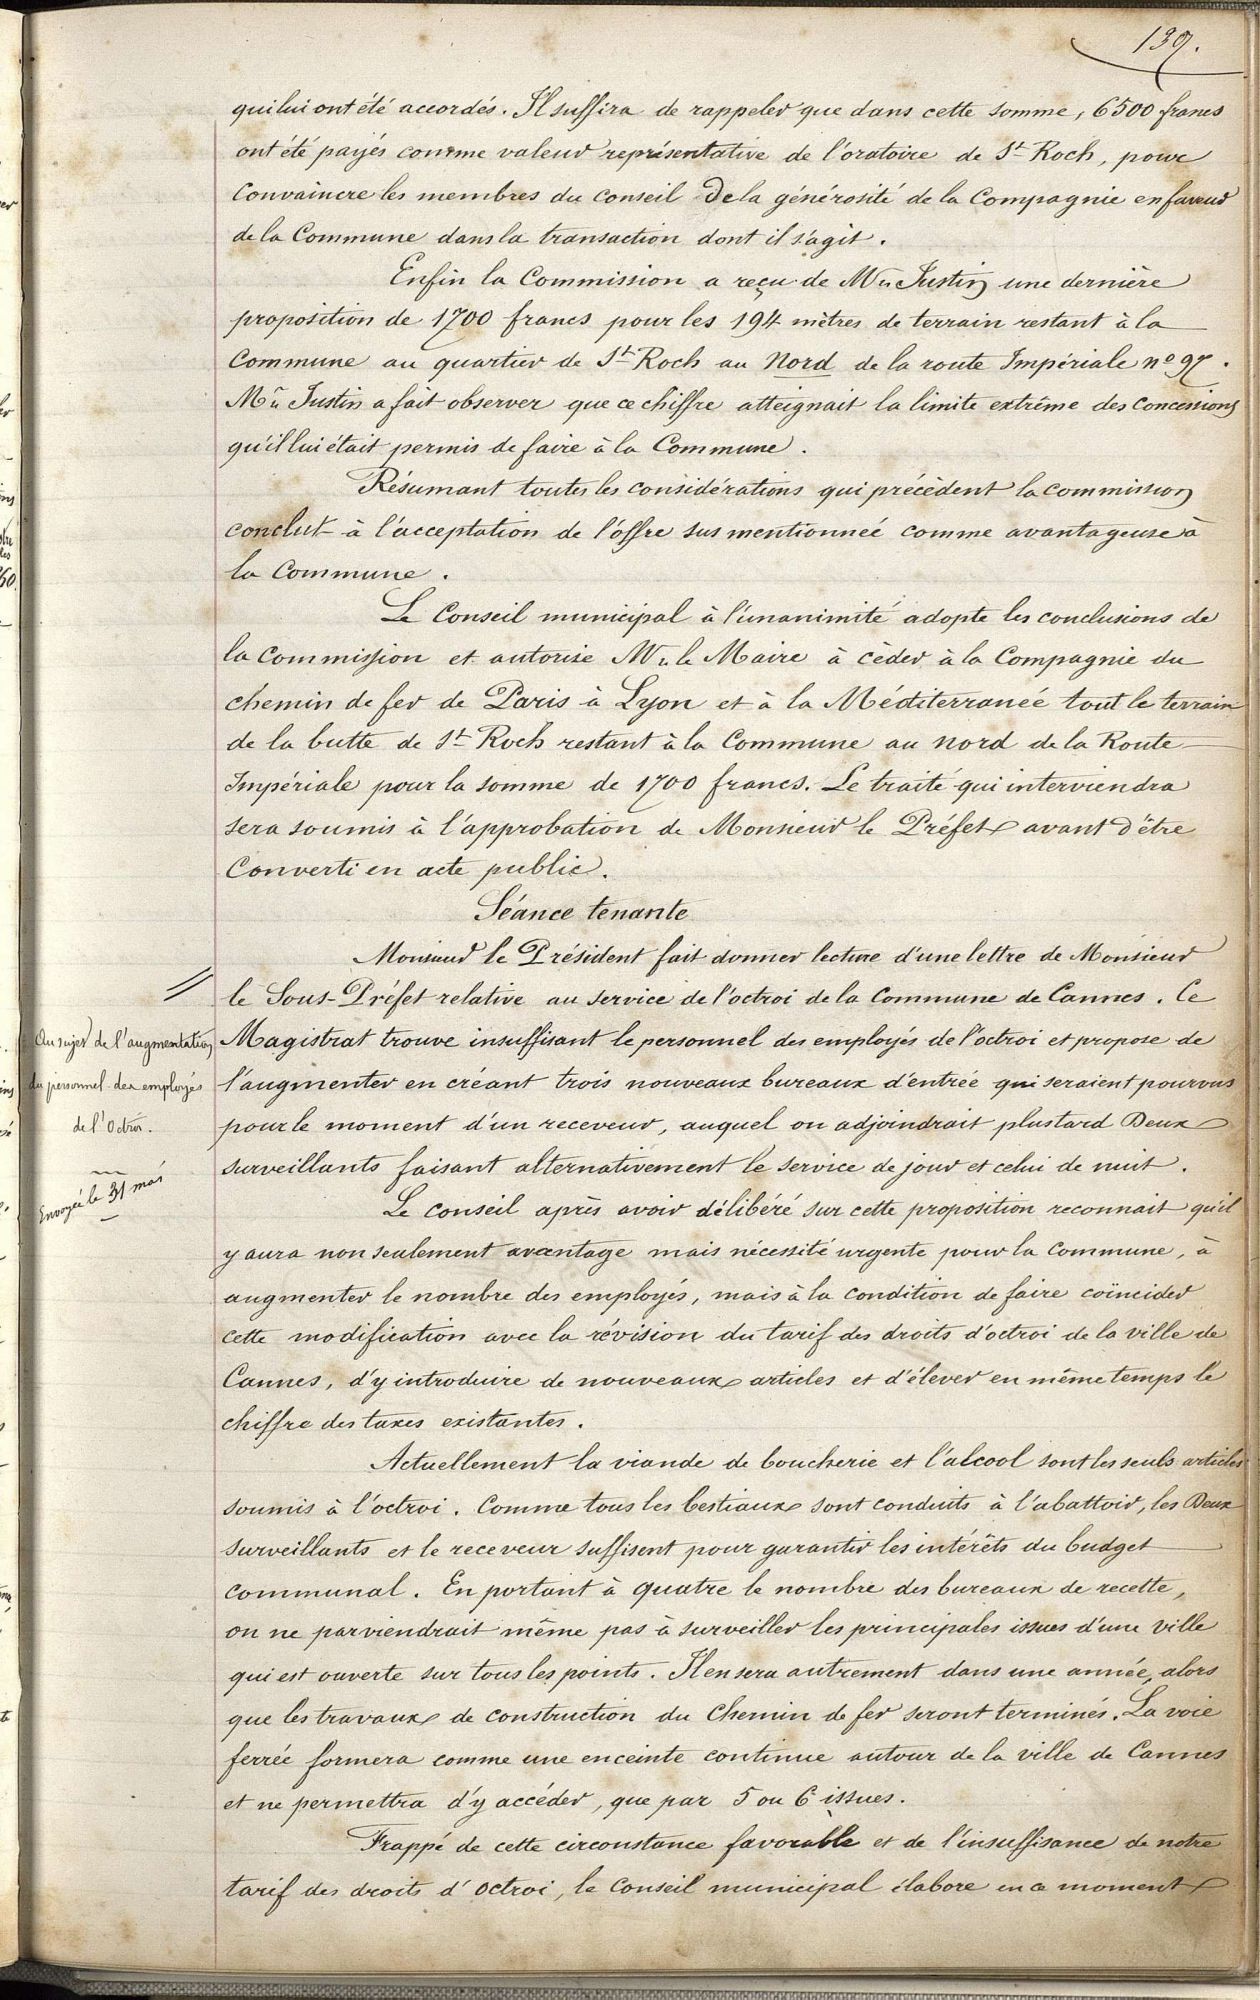 139.
qui lui ont été accordés. Il suffira de rappeler que dans cette somme, 6500 francs
ont été payés comme valeur représentative de l'oratoire de St Roch, pour
Convaincre les membres du Conseil de la générosité de la Compagnie en faveur
de la Commune dans la transaction dont il s'agit.
Enfin la Commission a reçu de Mr Justin une dernière
proposition de 1700 francs pour les 194 mètres de terrain restant à la
Commune au quartier de St Roch au Nord de la route Impériale no 97.
Mr Justin a fait observer que ce chiffre atteignait la limite extrême des Concessions
qu'il lui était permis de faire à la Commune.
Résumant toutes les considérations qui précèdent la commission
conclut à l'acceptation de l'offre sus mentionnée comme avantageuse à
la Commune.
Le Conseil municipal à l'unanimité adopte les conclusions de
la Commission et autorise Mr le Maire à cèder à la Compagnie du
chemin de fer de Paris à Lyon et à la Méditerranée tout le terrain
de la butte de St Roch restant à la Commune au nord de la Route
Impériale pour la somme de 1700 francs. Le traité qui interviendra
sera soumis à l'approbation de Monsieur le Préfet avant d'être
Converti en acte public.
Séance tenante
Monsieur le Président fait donner lecture d'une lettre de Monsieur
le Sous-Préfet relative au service de l'octroi de la Commune de Cannes. Ce
Magistrat trouve insuffisant le personnel des employés de l'octroi et propose de
l'augmenter en créant trois nouveaux bureaux d'entrée qui seraient pourvus
pour le moment d'un receveur, auquel on adjoindrait plus tard Deux
surveillants faisant alternativement le service de jour et celui de nuit.
Au sujet de l'augmentation
du personnel des employés
de l'Octroi.
Envoyée le 31 mai
Le Conseil après avoir délibéré sur cette proposition reconnait qu'il
y aura non seulement avantage mais nécessité urgente pour la Commune, à
augmenter le nombre des employés, mais à la condition de faire coïncider
cette modification avec la révision du tarif des droits d'octroi de la ville de
Cannes, d'y introduire de nouveaux articles et d'élever en même temps le
chiffre des taxes existantes.
Actuellement la viande de boucherie et l'alcool sont les seuls articles
soumis à l'octroi. Comme tous les bestiaux sont conduits à l'abattoir, les Deux
surveillants et le receveur suffisent pour garantir les intérêts du budget
communal. En portant à quatre le nombre des bureaux de recette,
on ne parviendrait même pas à surveiller les principales issues d'une ville
qui est ouverte sur tous les points. Il en sera autrement dans une année, alors
que les travaux de construction du Chemin de fer seront terminés. La voie
ferrée formera comme une enceinte continue autour de la ville de Cannes
et ne permettra d'y accéder, que par 5 ou 6 issues.
Frappé de cette circonstance favorable et de l'insuffisance de notre
tarif des droits d'octroi, le Conseil municipal élabore en ce moment